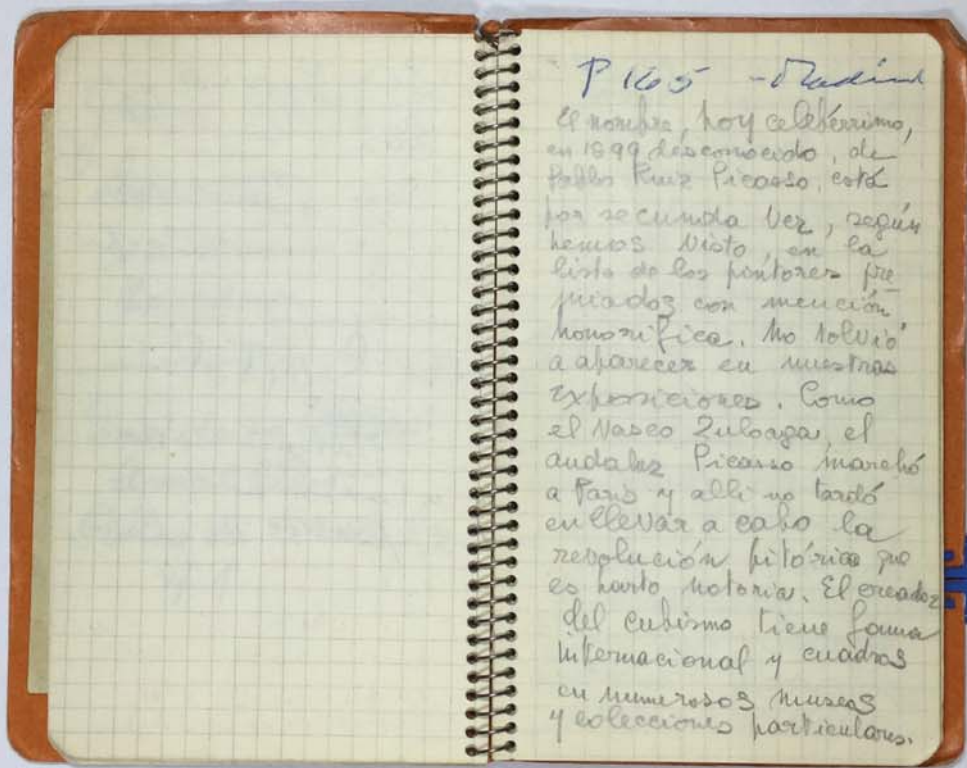 P 165 - Madrid
El nombre, hoy celebérrimo,
en 1899 desconocido, de
Pablo Ruiz Picasso, está
por secunda vez, según
hemos visto, en la
lista de los pintores pre
miados con mención
honorifica. No volvió
a aparecer en nuestras
exposiciones. Como
el vasco Zuloaga, el
andaluz Picasso marchó
a Paris y alli no tardó
en llevar a cabo la
revolución pitórica que
es harto notoria. El creador
del cubismo tiene fama
internacional y cuadros
en numerosos museos
y colecciones particulares.